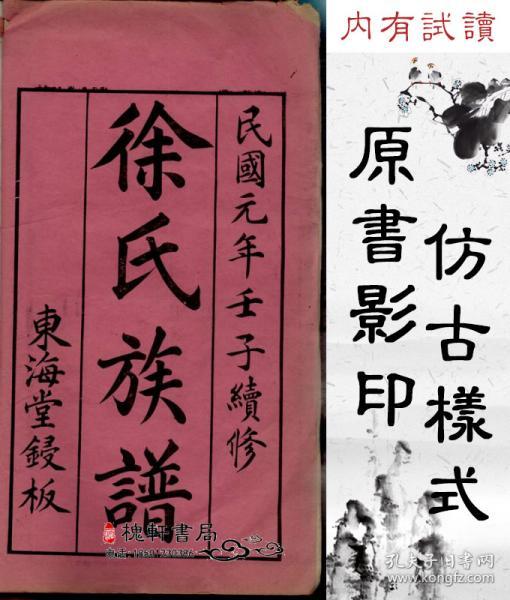 內有試讀
民國元年壬子續修
徐氏族譜
東海堂鋟板
原書影印
仿古樣式
槐軒書局
孔夫子旧书网
www.kongfz.com